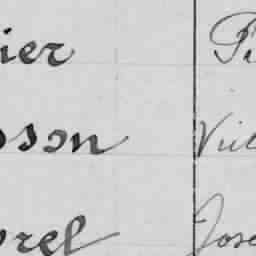 ier Pi
sson Vic
orel Jose